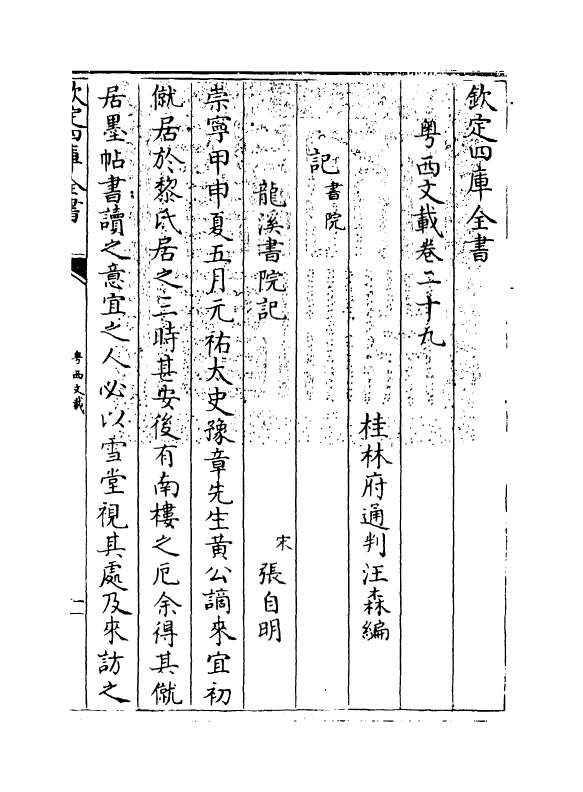 欽定四庫全書
粵西文載卷二十九
桂林府通判汪森編
記書院
龍溪書院記
宋張自明
崇寧甲申夏五月元祐太史豫章先生黄公謫來宜初
僦居於黎氏居之三時甚安後有南樓之厄余得其僦
居墨帖書讀之意宜之人必以雪堂視其處及來訪之
欽定四庫全書
粵西文載
一